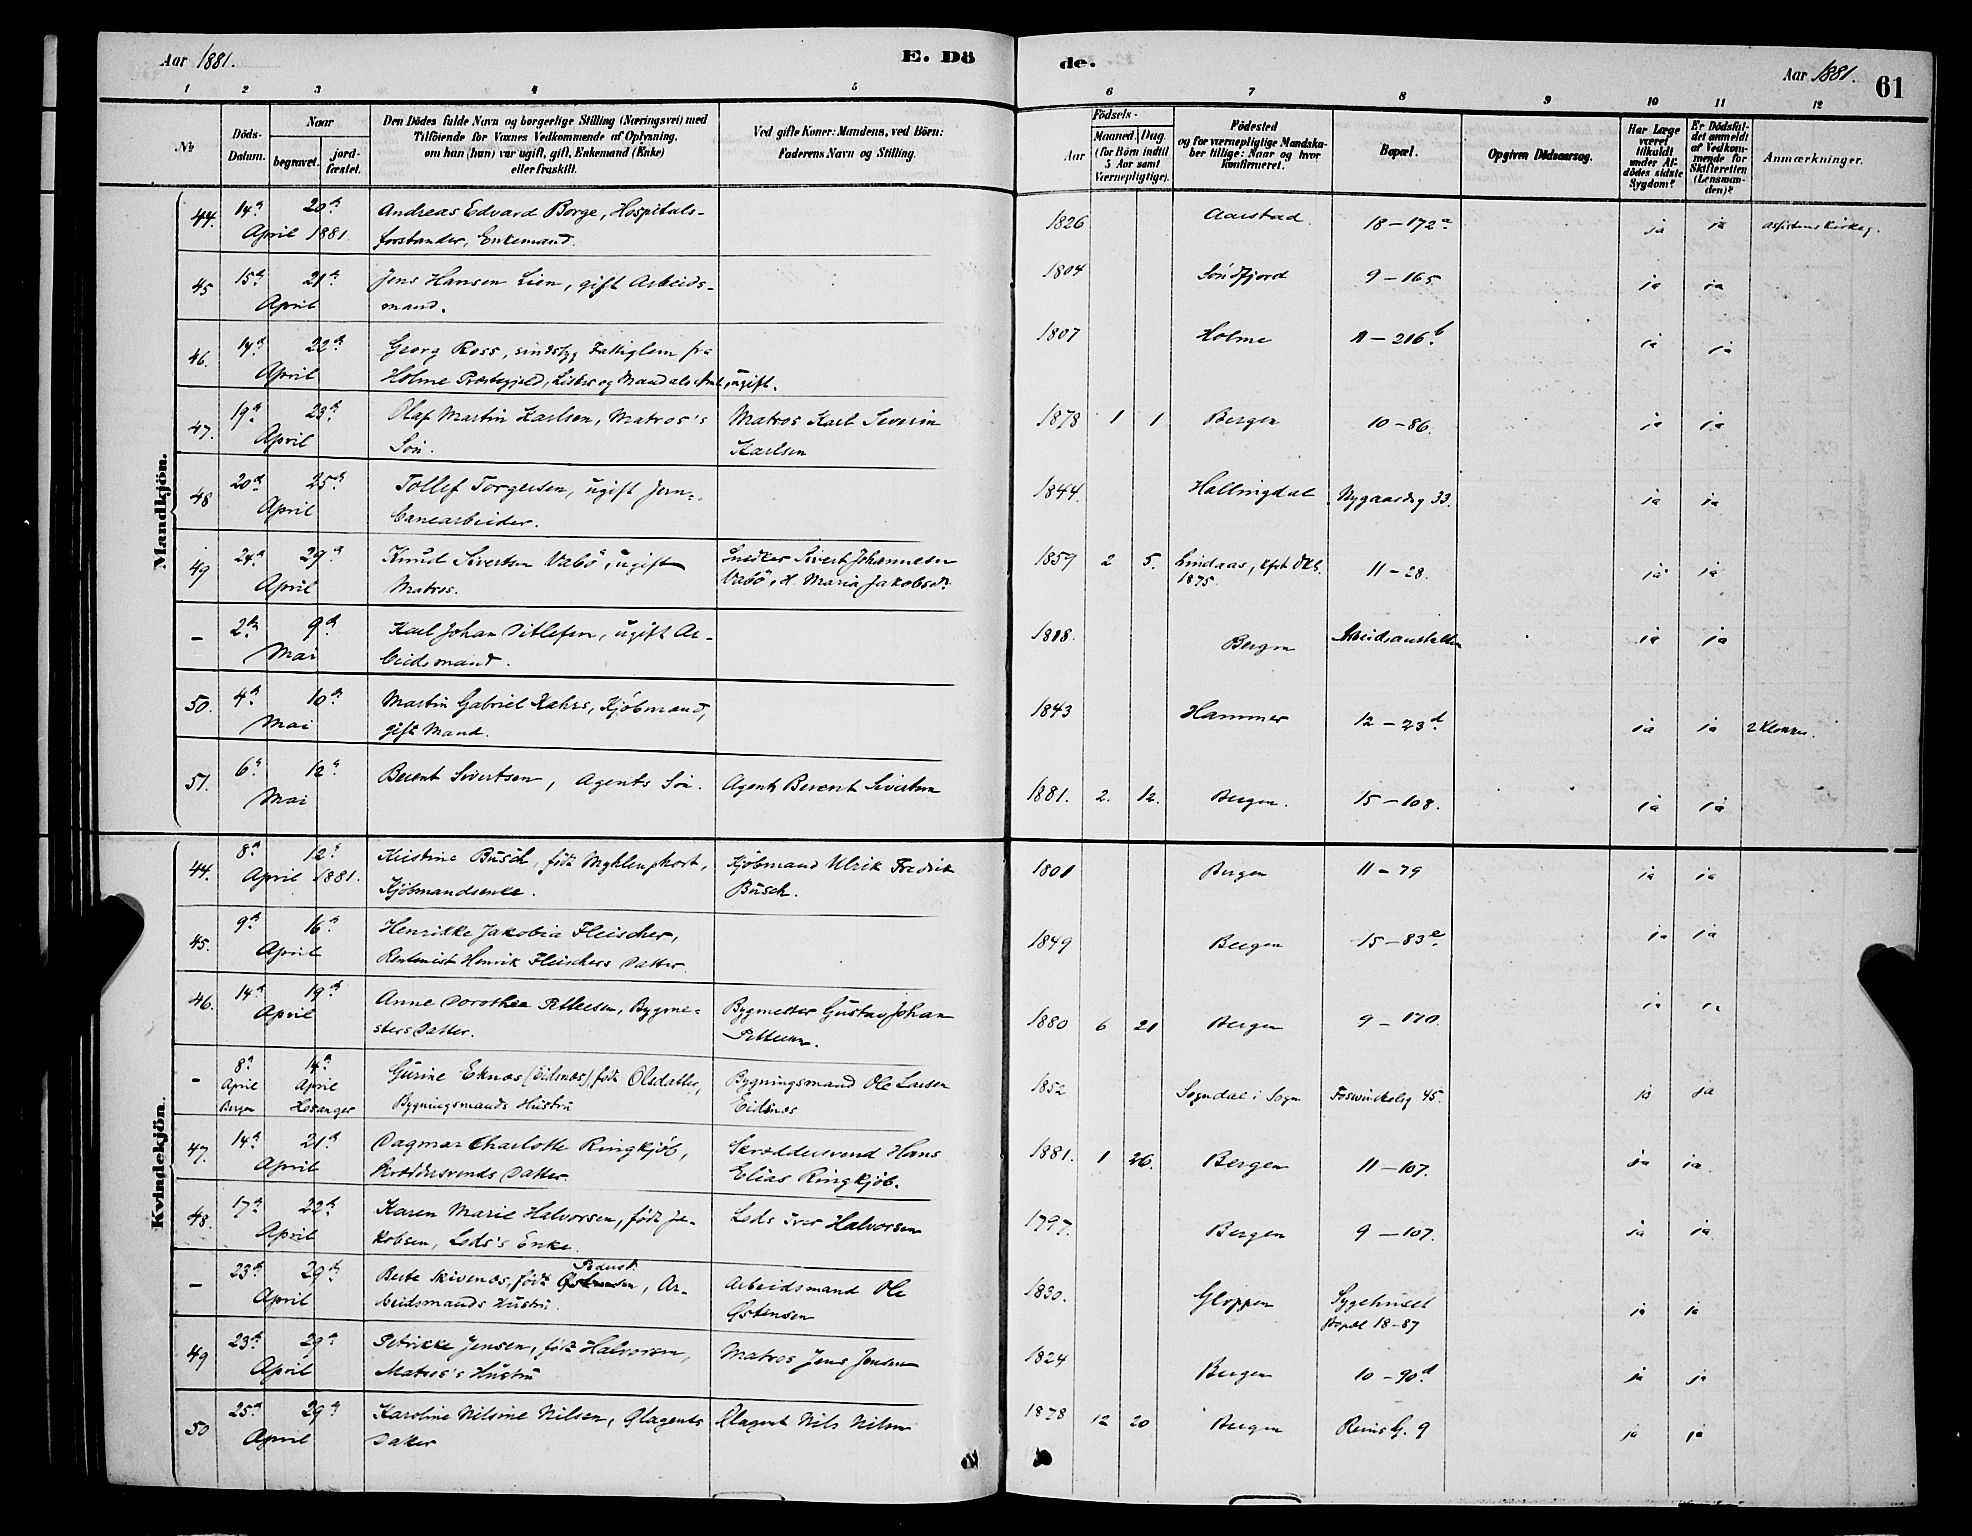 Aar 1881.
E. Dö
de.
Aar 1881.
61
1 2 3 4 5 6 7 8 9 10 11 12
No
Döds-
Datum.
Naar
begravet.
jord-
fæstet.
Den Dödes fulde Navn og borgerlige Stilling (Næringsvei) med
Tilföiende for Voxnes Vedkommende af Oplysning,
om han (hun) var ugift, gift, Enkemand (Enke)
eller fraskilt.
Ved gifte Koner: Mandens, ved Börn:
Faderens Navn og Stilling.
Födsels-
Aar
Maaned.
Dag.
(for Börn indtil
5 Aar samt
Værnepligtige).
Födested
og for værnepligtige Mandska-
ber tillige: Naar og hvor
konfirmeret.
Bopæl.
Opgiven Dödsaarsag.
Har Læge
været
tilkaldt
under Af-
dödes sidste
Sygdom?
Er Dödsfal-
det anmeldt
af Vedkom-
mende for
Skifteretten
(Lensman-
den)?
Anmærkninger.
Mandkjön.
44. 14de 20de Andreas Edvard Borge, Hospitals- 1826 Aarstad 18-172a ja ja assistenskirkeg.
April 1881. forstander, Enkemand.
45 15de 21de Jens Hansen Lien, gift Arbeids- 1804 Söndfjord 9-165 ja ja
April mand.
46. 14de 22de Georg Ross, sindssyg Fattiglem fra 1807 Holme 11-216b. ja ja
April Holme Præstegjeld, Lister og Mandals Amt, ugift.
47. 19de 23de Olaf Martin Karlsen, Matros's Matros Karl Severin 1878 1 1 Bergen 10-86. ja ja
April Sön. Karlsen
48 20de 25de Tollef Torgersen, ugift Jern- 1844. Hallingdal Nygaardsg 33. ja ja
April banearbeider.
49 24de 29de Knud Sivertsen Vabö, ugift Snedker Sivert Johannesen 1859 2 5. Lindaas, kfrt Dkb. 11-28. ja ja
April Matros. Vabö, H. Maria Jakobsdr. 1875.
- 2den 9de Karl Johan Ditlefsen, ugift Ar- 1818. Bergen Arbeidsanstalten ja ja
Mai beidsmand.
50. 4de 10de Martin Gabriel Kahrs, Kjöbmand, 1843 Hammer 12-23d. ja ja 2 Klokker.
Mai gift Mand.
51. 6te 12te Berent Sivertsen, Agents Sön. Agent Berent Sivertsen 1881. 2. 12. Bergen. 15-108. ja ja
Mai
Kvindekjön.
44. 8de 12te Kristine Büsch, födt Myhlenphort, Kjöbmand Ulrik Fredrik 1801 Bergen 11-79 ja ja
April 1881. Kjöbmandsenke. Büsch.
45. 9de 16de Henrikke Jakobia Fleischer, 1849 Bergen 15-83e. ja ja
April Rentenist Henrik Fleischers Datter.
46. 14de 19de Anne Dorothea Pettersen, Bygme- Bygmester Gustav Johan 1880 6 21 Bergen 9-170. ja ja
April sters Datter. Pettersen.
- 8de 14de Gurine Eknæs (Eidsnæs), födt Olsdatter, Bygningsmand Ole Larsen 1852 Sogndal i Sogn Foswinckelsg 45. ja ja
April April Bygningsmands Hustru Eidsnæs
Bergen Hosanger
47. 14de 21de Dagmar Charlotte Ringkjöb, Skræddersvend Hans 1881. 1 26. Bergen 11-107. ja ja.
April Skræddersvends Datter. Elias Ringkjöb.
48. 17de 22de Karen Marie Halvorsen, födt Ja- Lods Iver Halvorsen 1797. Bergen 9-107. ja ja
April kobsen, Lods's Enke.
- 23de 29de Berte Skivenæs, födt Pedersd. Østensen, Ar- Arbeidsmand Ole 1830. Gloppen Sygehuset ja ja
April beidsmands Hustru. Østensen Bopæl 18-87
49 23de 29de Petrikke Jensen, födt Halvorsen, Matros Jens Jensen 1824 Bergen 10-90d. ja ja
April Matros's Hustru
50 25de 29de Karoline Nilsine Nilsen, Ølagents Ølagent Nils Nilsen 1878 12 20 Bergen Reins G. 9 ja ja
April Datter